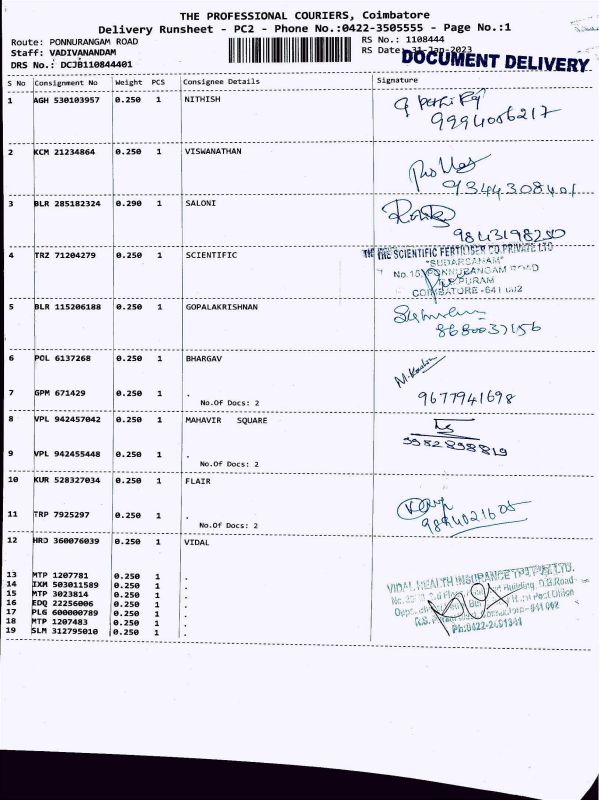 THE PROFESSIONAL COURIERS, Coimbatore
Delivery Runsheet - PC2 - Phone No.:0422-3505555 - Page No.:1
Route: PONNURANGAM ROAD RS No.: 1108444
Staff: VADIVANANDAM RS Date: 31-Jan-2023
DRS No.: DCJB110844401 DOCUMENT DELIVERY
S No Consignment No Weight PCS Consignee Details Signature
1 AGH 530103957 0.250 1 NITHISH
9994006217
2 KCM 21234864 0.250 1 VISWANATHAN
9344308401
3 BLR 285182324 0.290 1 SALONI
9843198250
4 TRZ 71204279 0.250 1 SCIENTIFIC THE SCIENTIFIC FERTILISER CO.PRIVATE LTD
"SUDARSANAM"
No.15, PONNURANGAM ROAD
PURAM
COIMBATORE-641 002
5 BLR 115206188 0.250 1 GOPALAKRISHNAN
8680037156
6 POL 6137268 0.250 1 BHARGAV
7 GPM 671429 0.250 1 . 9677941698
No.Of Docs: 2
8 VPL 942457042 0.250 1 MAHAVIR SQUARE
9982898819
9 VPL 942455448 0.250 1 .
No.Of Docs: 2
10 KUR 528327034 0.250 1 FLAIR
11 TRP 7925297 0.250 1 . 9894021605
No.Of Docs: 2
12 HRD 360076039 0.250 1 VIDAL
13 MTP 1207781 0.250 1 . VIDAL HEALTH INSURANCE TPA PVT LTD.
14 IXM 503011589 0.250 1 . Building, D.B.Road
15 MTP 3023814 0.250 1 . Head Post Office
16 EDQ 22256006 0.250 1 . R.S. Puram Coimbatore-641 002
17 PLG 600000789 0.250 1 .
18 MTP 1207483 0.250 1 .
19 SLM 312795010 0.250 1 .